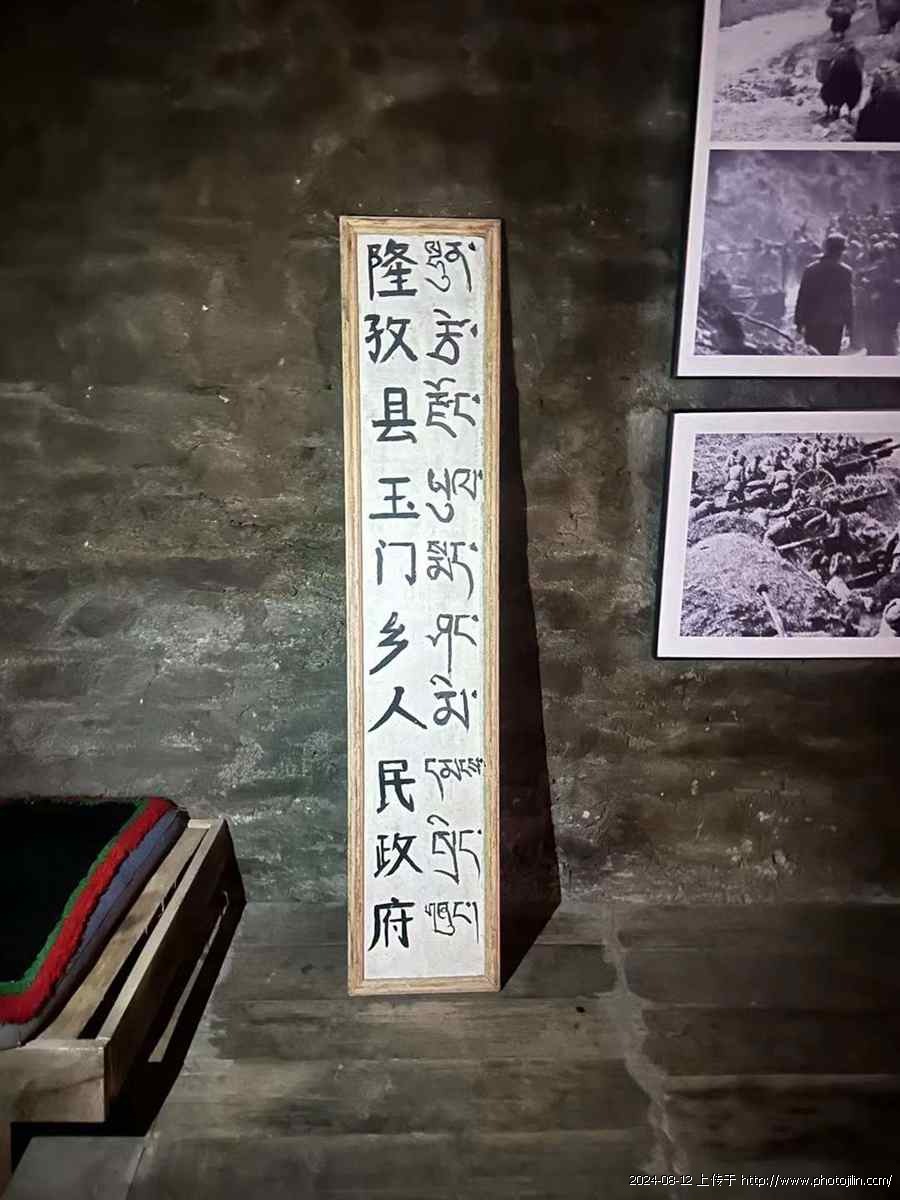 隆孜县玉门乡人民政府
ལྷུན་རྩེ་རྫོང་ཡུལ་སྨད་ཤང་མི་དམངས་སྲིད་གཞུང་།
2024-08-12 上传于 http://www.photojilin.com/